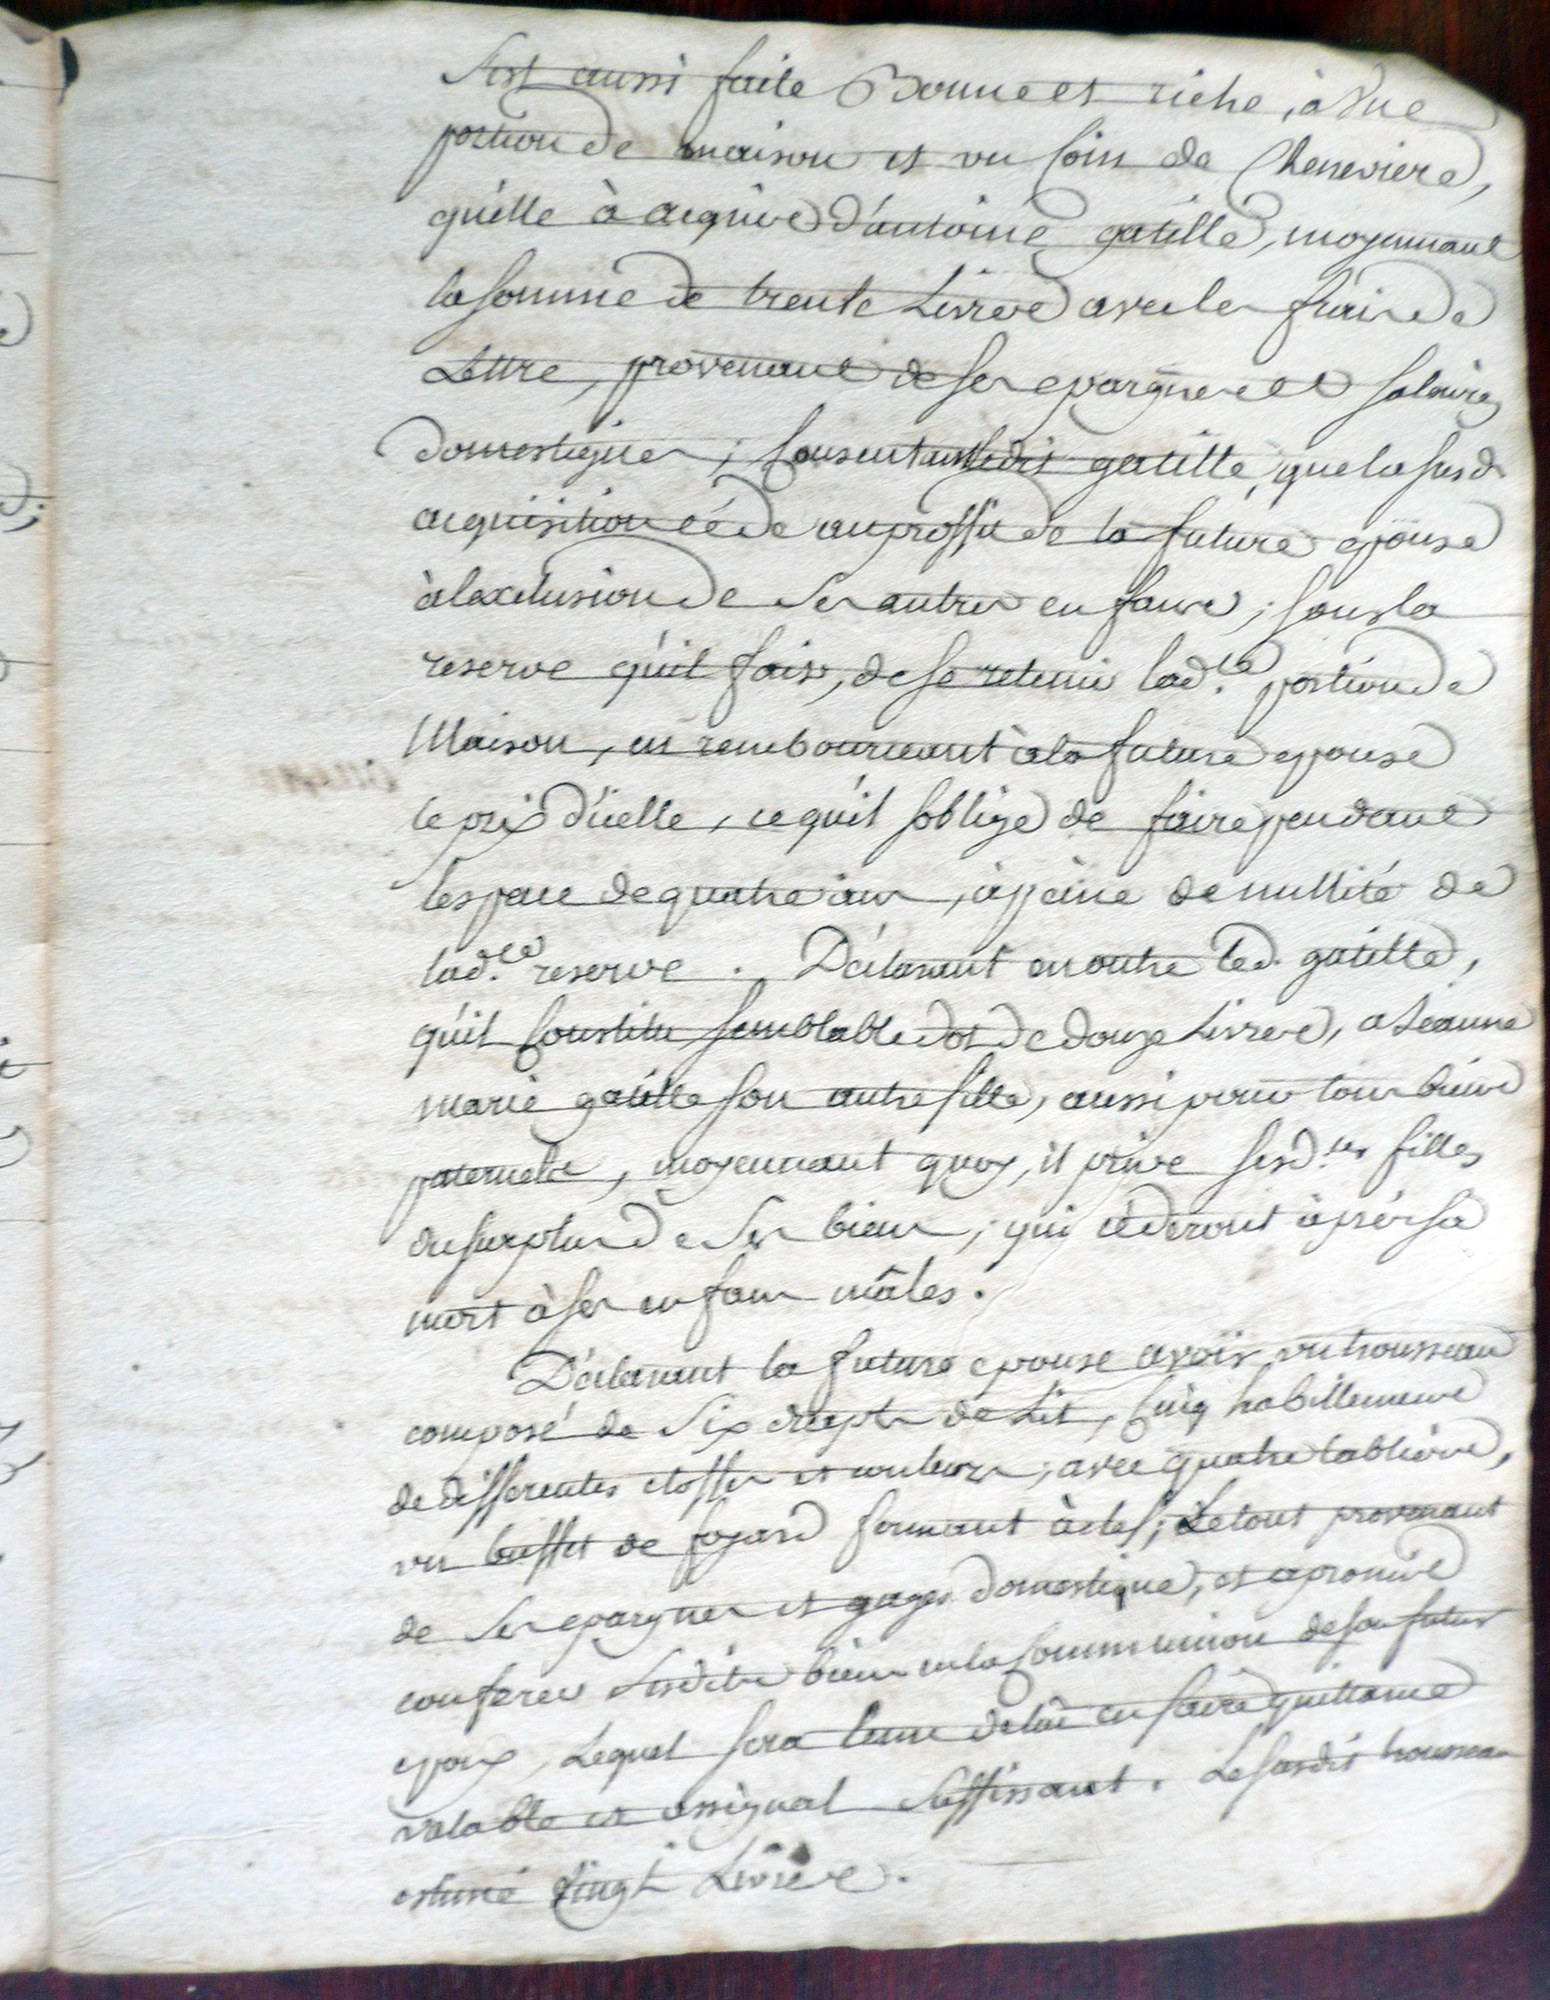 s'est aussi faite Bonne et riche, à une
portion de maison et un Coin de Cheneviere,
qu'elle à acquise d'antoine gatille, moyennant
la somme de trente Livres avec les frais de
Lettre, provenant de ses epargnes et salaires
domestiques; Consentant ledit gatille, que la susd.
acquisition céde au proffit de la future epouse
à lexclusion de ses autres enfans; sous la
reserve qu'il fait, de se retenir lad.te portion de
Maison, en rembourceant à la future epouse
le prix d'icelle, ce qu'il soblige de faire pendant
l'espace de quatre ans, à peine de nullité de
lad.te reserve. Déclarant en outre led. gatille,
qu'il Constitue semblable dot de douze Livres, a Jeanne
marie gatille son autre fille, aussi pour tous biens
paternels, moyennant quoy, il prive sesd.tes filles
du surplus de ses biens, qui céderont après sa
mort à ses enfans mâles.
Déclarant la future epouse avoir un trousseau
composé de Six draps de Lit, Cinq habillements
de differentes etoffes et couleurs, avec quatre tabliers,
un buffet de foyard fermant à clef; Le tout provenant
de ses epargnes et gages domestiques, et a promis
conferer sesdits biens en la Communion de son futur
epoux, Lequel sera tenu de lui en faire quittance
valable et assignal suffissant. Le susdit trousseau
estimé vingt Livres.